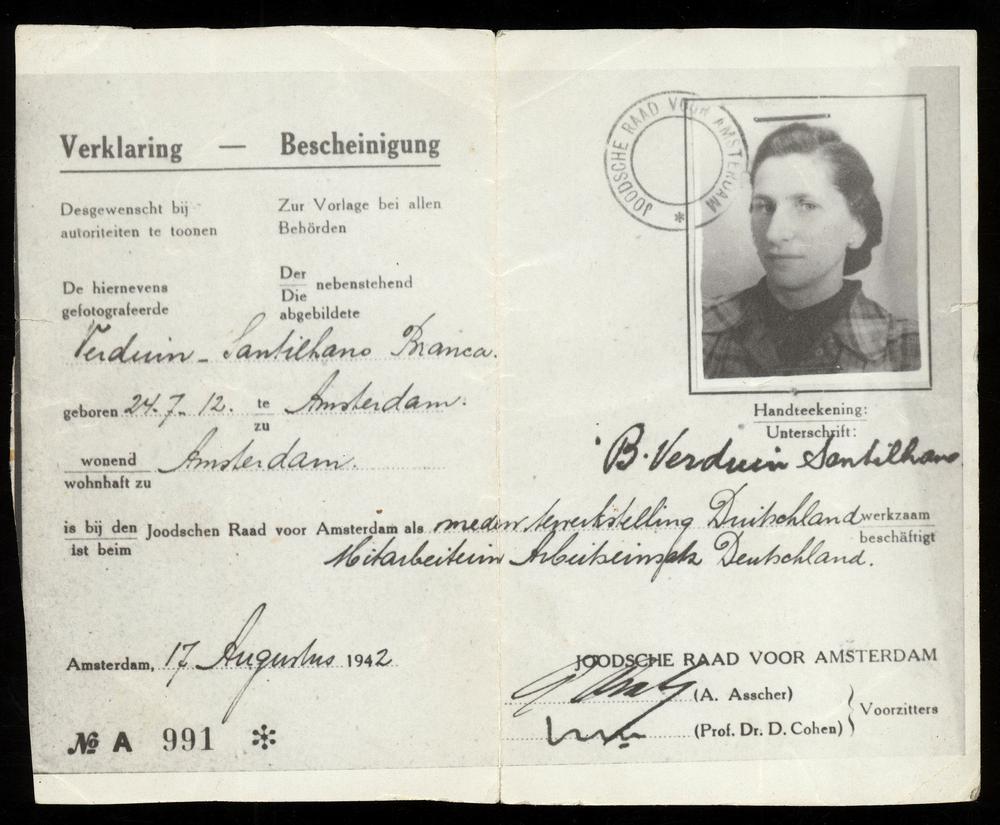 Verklaring — Bescheinigung
Desgewenscht bij autoriteiten te toonen
Zur Vorlage bei allen Behörden
De hiernevens gefotografeerde
Der
Die
nebenstehend
abgebildete
Verduin - Santilhano Branca.
geboren 24. 7. 12. te Amsterdam.
zu
wonend Amsterdam.
wohnhaft zu
is bij den Joodschen Raad voor Amsterdam als medew. tewerkstelling Duitschland werkzaam
ist beim Mitarbeiterin Arbeitseinsatz Deutschland. beschäftigt
Amsterdam, 17 Augustus 1942
№ A 991 *
JOODSCHE RAAD VOOR AMSTERDAM *
Handteekening:
Unterschrift:
B. Verduin Santilhano
JOODSCHE RAAD VOOR AMSTERDAM
(A. Asscher)
(Prof. Dr. D. Cohen)
Voorzitters